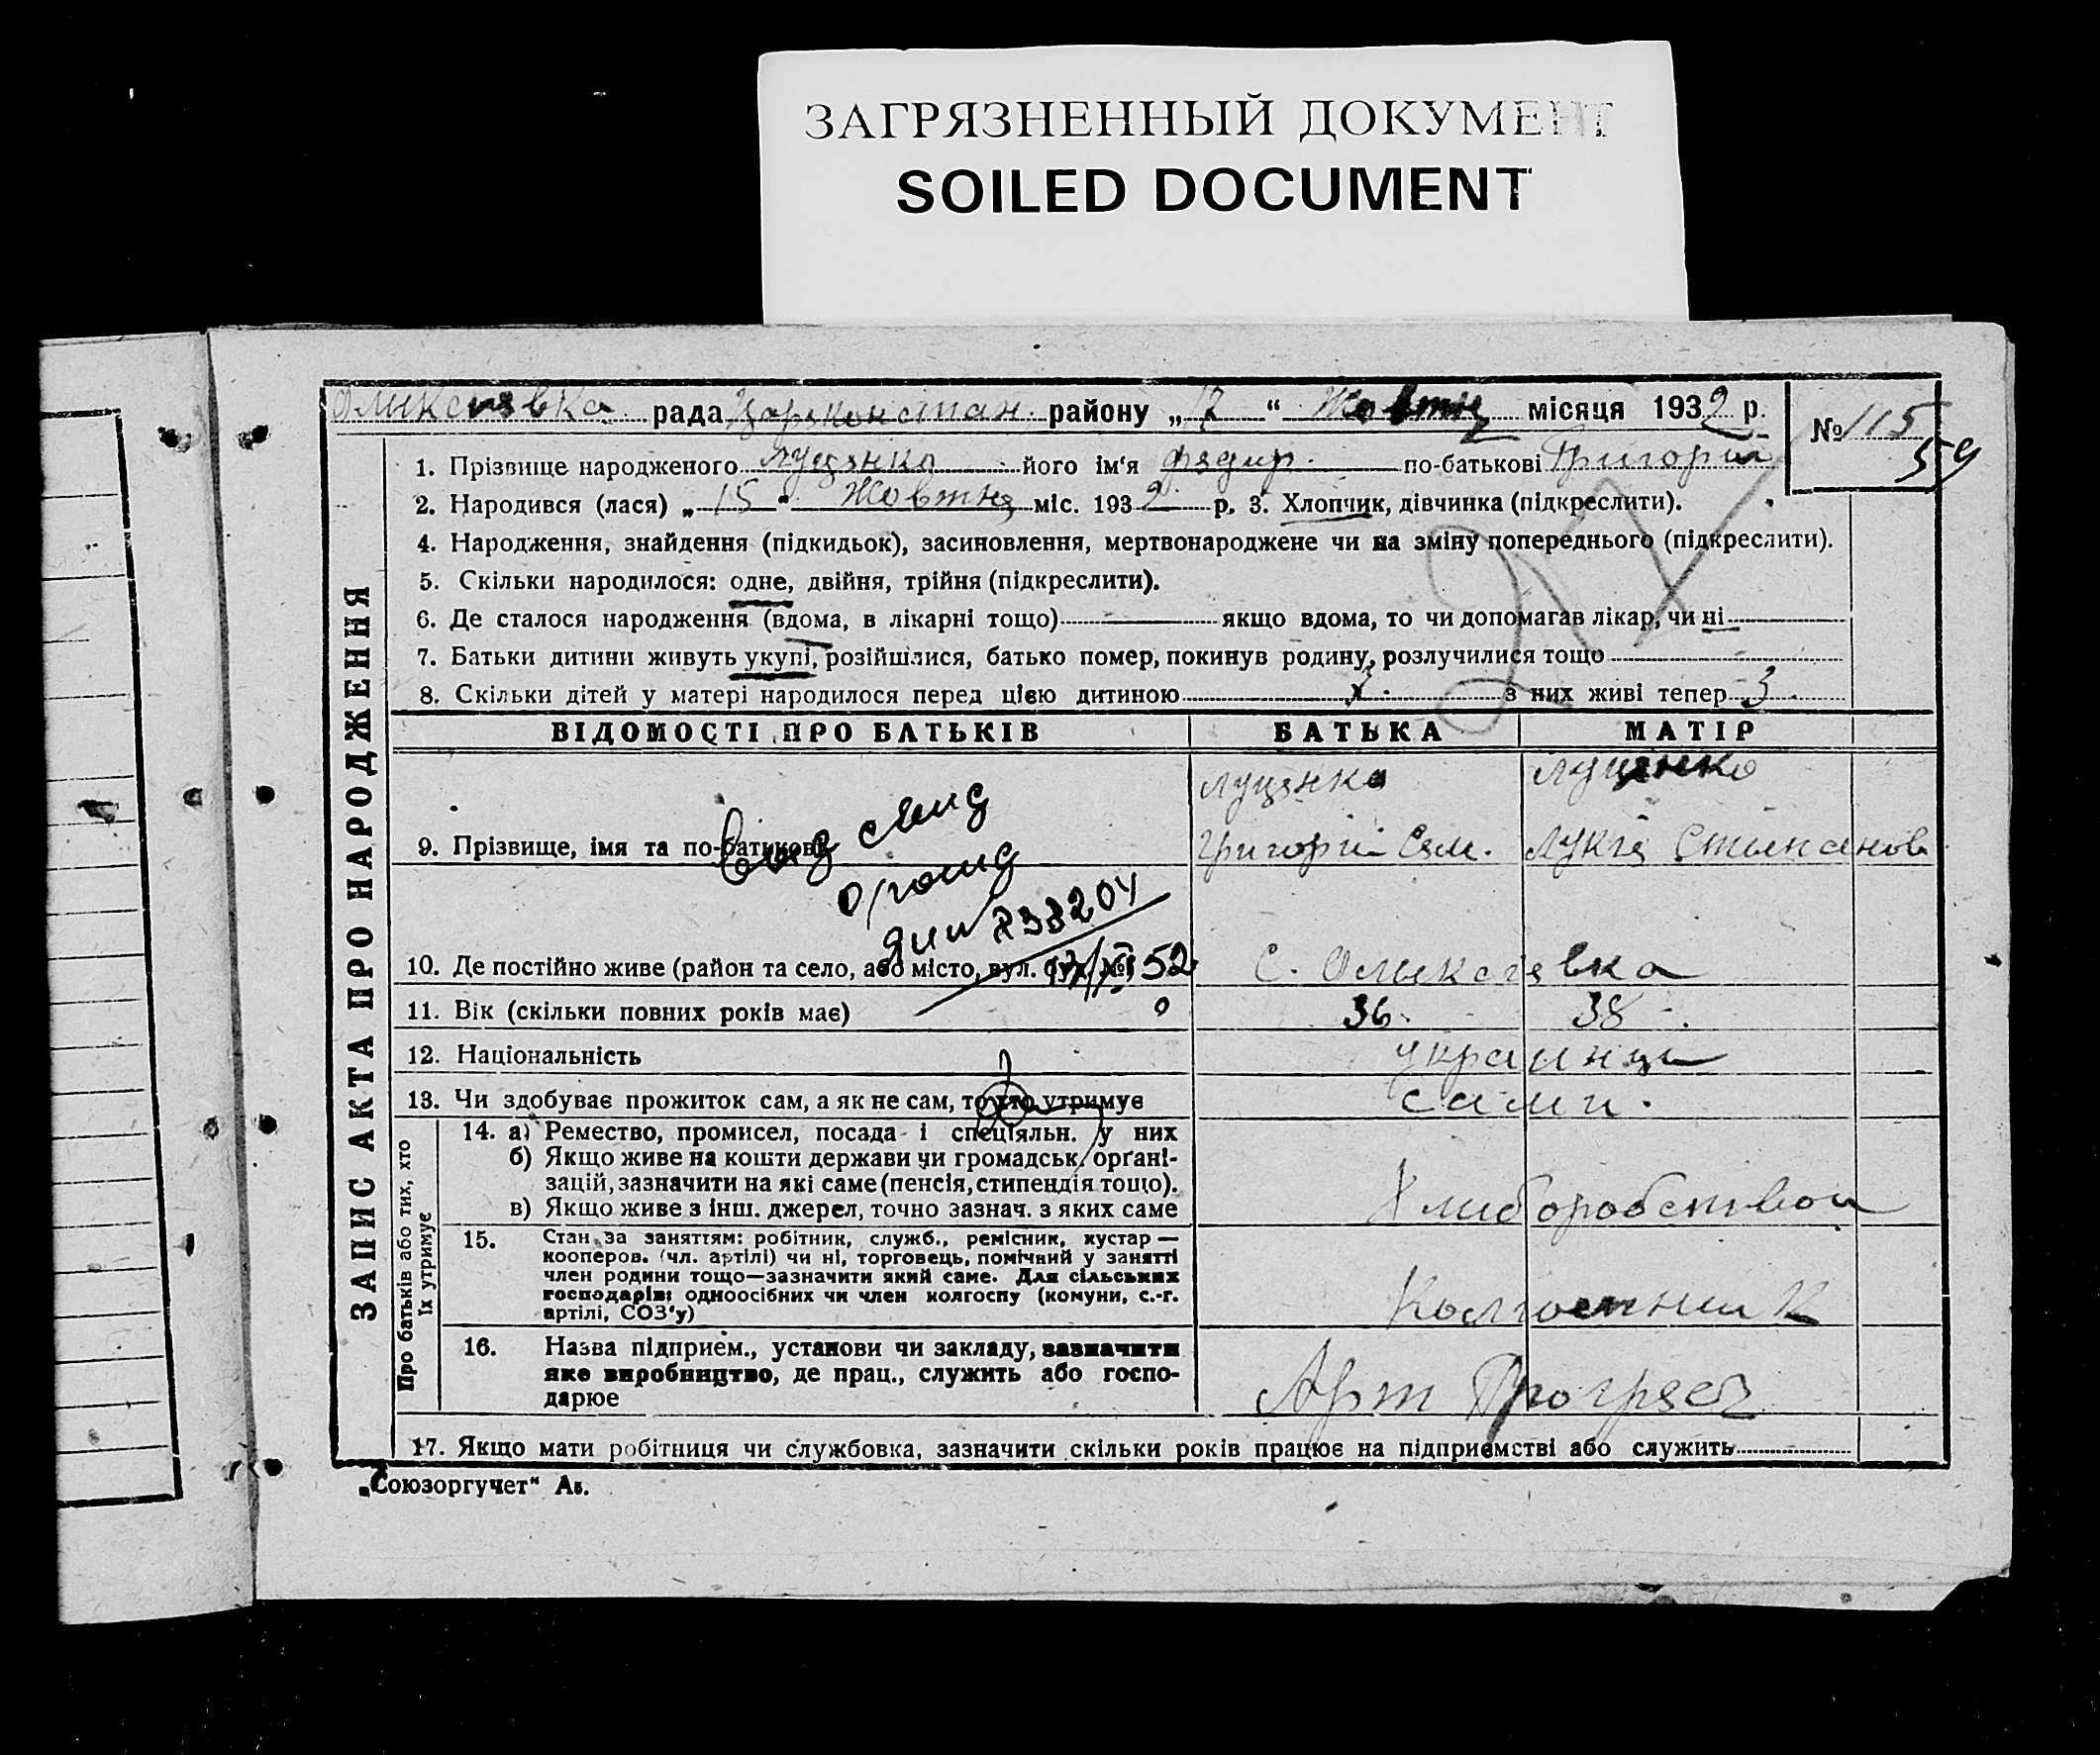 ЗАГРЯЗНЕННЫЙ ДОКУМЕНТ
SOILED DOCUMENT
Олексіявка рада Царяконстан. району „17“ Жовтня місяця 1932 р.
№ 115
59
1. Прізвище народженого Луцянко його ім'я Фядир. по-батькові Григорій
2. Народився (лася) „15“ Жовтня міс. 1932 р. 3. Хлопчик, дівчинка (підкреслити).
4. Народження, знайдення (підкидьок), засиновлення, мертвонароджене чи на зміну попереднього (підкреслити).
5. Скільки народилося: одне, двійня, трійня (підкреслити).
6. Де сталося народження (вдома, в лікарні тощо) якщо вдома, то чи допомагав лікар, чи ні
7. Батьки дитини живуть укупі, розійшлися, батько помер, покинув родину, розлучилися тощо
8. Скільки дітей у матері народилося перед цією дитиною з них живі тепер 3.
ЗАПИС АКТА ПРО НАРОДЖЕННЯ
ВІДОМОСТІ ПРО БАТЬКІВ БАТЬКА МАТІР
Луцянко Луцянко
9. Прізвище, імя та по-батькові Григорій Сем. Лукія Стипанов
233204
10. Де постійно живе (район та село, або місто, вул. буд. №) 52 С. Олексіявка
11. Вік (скільки повних років має) 36. 38.
12. Національність украинци
13. Чи здобуває прожиток сам, а як не сам, то хто утримує сами.
Про батьків або тих, хто їх утримує
14. а) Ремество, промисел, посада і спеціяльн. у них
б) Якщо живе на кошти держави чи громадськ. орґані-
зацій, зазначити на які саме (пенсія, стипендія тощо).
в) Якщо живе з інш. джерел, точно зазнач. з яких саме
Хлиборобством
15. Стан за заняттям: робітник, служб., ремісник, кустар —
кооперов. (чл. артілі) чи ні, торговець, помічний у занятті
член родини тощо—зазначити який саме. Для сільських
господарів: одноосібних чи член колгоспу (комуни, с.-г.
артілі, СОЗ'у)
Колгоспник
16. Назва підприєм., установи чи закладу, зазначити
яке виробництво, де прац., служить або госпо-
дарюе
Арт Прогряс
17. Якщо мати робітниця чи службовка, зазначити скільки років працює на підприємстві або служить
„Союзоргучет“ Ав.